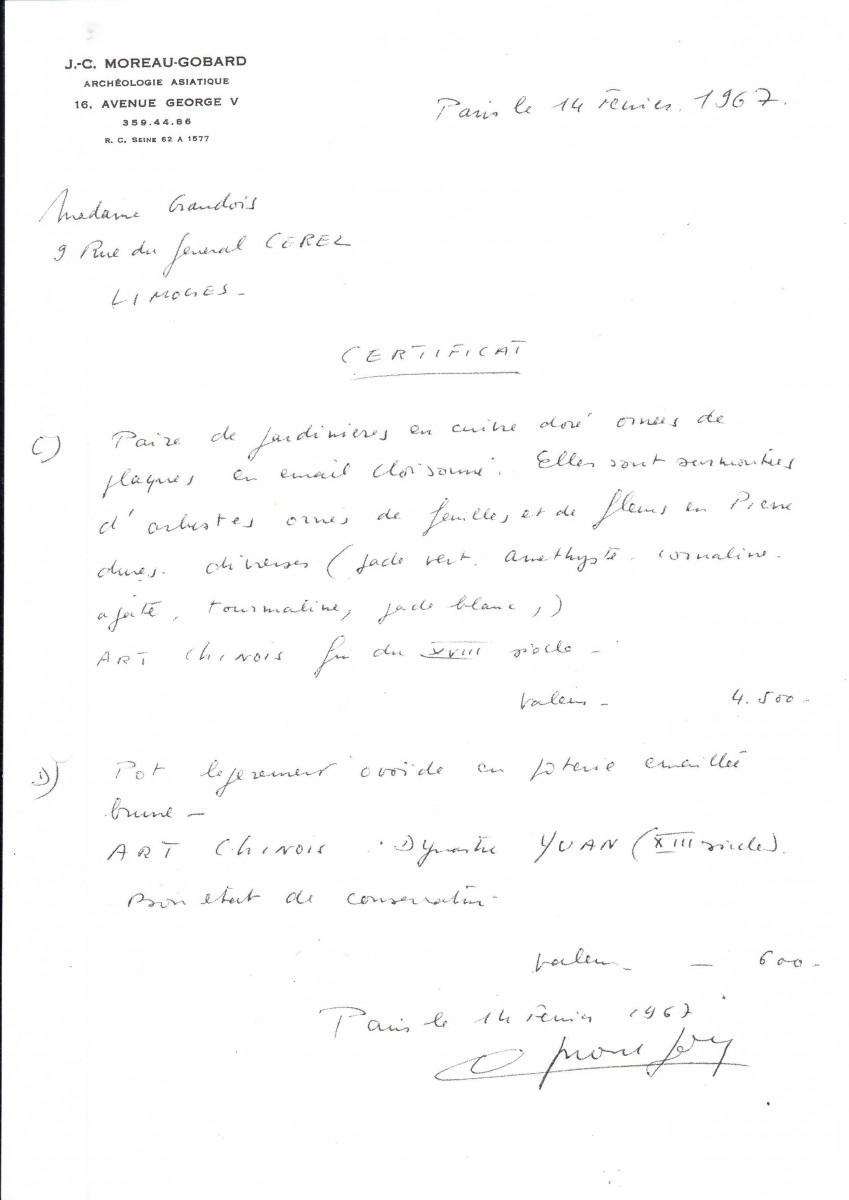 J.-C. MOREAU-GOBARD
ARCHÉOLOGIE ASIATIQUE
16, AVENUE GEORGE V
359.44.86
R. C. SEINE 62 A 1577
Paris le 14 Février 1967.
Madame Grandois
9 Rue du General CEREZ
LIMOGES -
CERTIFICAT
C) Paire de jardinieres en cuivre doré ornées de
plaques en email cloisonné. Elles sont surmontées
d'arbustes ornés de feuilles et de fleurs en Pierre
dures. diverses (jade vert. amethyste. cornaline.
agate, tourmaline, jade blanc,)
ART ChINOIS fin du XVIII siècle -
Valeur - 4.500 -
D) Pot legerement ovoïde en poterie emaillée
brune -
ART ChINOIS. Dynastie YUAN (XIII siècle).
Bon etat de conservation
Valeur - 600 -
Paris le 14 Février 1967